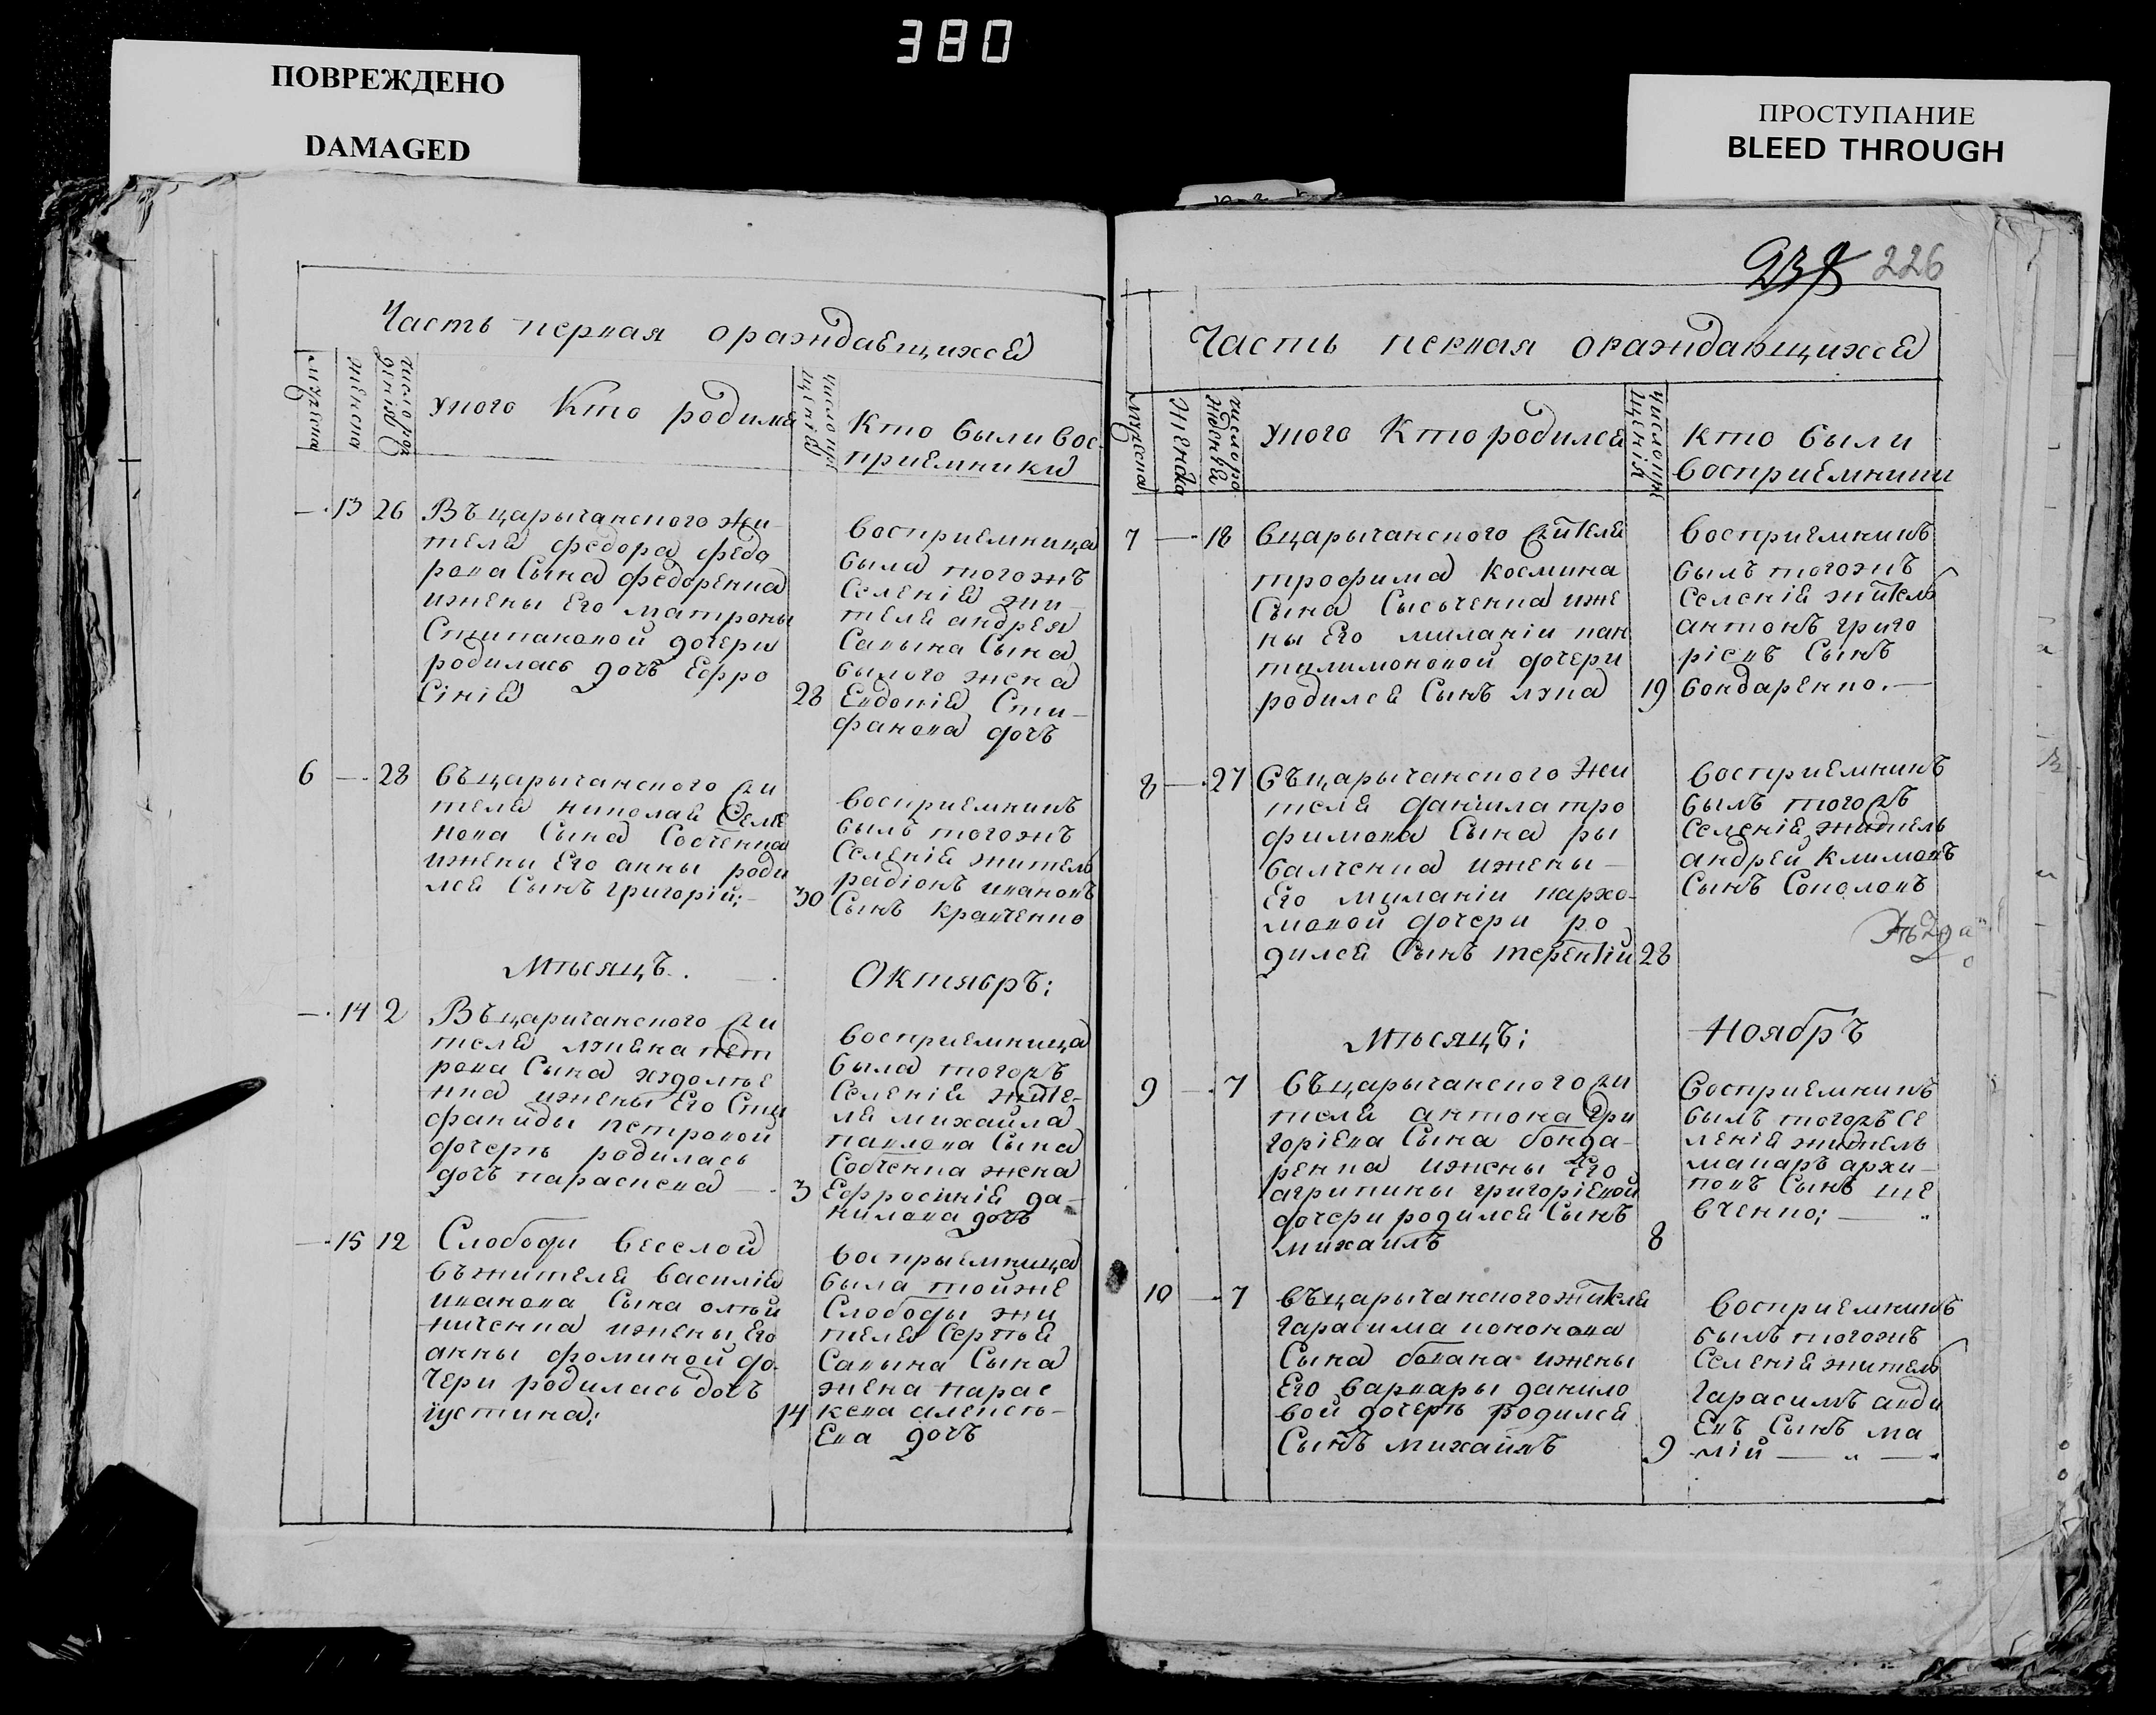 380
ПОВРЕЖДЕНО
DAMAGED
ПРОСТУПАНИЕ
BLEED THROUGH
Часть первая ораждаещихся
мужеска
женска
число рож
денія
Уково Кто родился
число кре
щенія
Кто были вос-
приемники
13 26
Въ царычанского жи
теля федора федо
рова Сына федоренка
ижены Его матроны
Степановой дочери
родилась дочъ Ефро
Сінія
28
восприемница
была тогожъ
Селенія жи
теля андрея
Савына Сына
былого жена
Евдокія Сти-
фанова дочъ
6 — 28
въцарычанского жи
теля николая Семе
нова Сына Совченка
ижены Его анны роди
лся Сынъ григорій;
30
восприемникъ
былъ тогожъ
Селенія житель
радіонъ ивановъ
Сынъ кравченко
Мѣсяцъ.
Октябръ;
— 14 2
Въцаричанского жи
теля
рова Сына
ижены Его Сти
фаниды петровой
дочерѣ родилась
дочъ параскева
3
восприемница
была тогожъ
Селенія жите-
ля михайла
павлова Сына
Совченка жена
Ефросинія да-
нилова дочъ
— 15 12
Слободи веселой
въжителя василія
иванова Сына олѣй
ниченка ижены Его
анны фоминой до
чери родилась дочъ
іустина;
14
восприемница
была тойже
Слободы жи
теля Сергѣя
Савына Сына
жена парас
кева алексѣ-
Ева дочъ
237 226
Часть первая ораждающихся
мужеска
женска
число ро
жденія
Уково Кто родился
число кре
щенія
кто были
восприемники
7 — 18
вцарычанского жителя
трофима космина
Сына Сысоченка иже
ны Его миланіи пан
тилимоновой дочери
родился Сынъ лука
19
восприемникъ
былъ тогожъ
селенія житель
антонъ григо
ріевъ Сынъ
бондаренко.
8 — 27
въцарычанского жи
теля даніила тро
фимова Сына ры
балченка ижены
Его миланіи пархо-
мовой дочери ро
дился Сынъ терентій
28
восприемникъ
былъ тогожъ
селенія житель
андрей климовъ
Сынъ Соколовъ
мѣсяцъ;
Ноябръ
9 — 7
въцарычанского жи
теля антона гри
горіева Сына бонда-
ренка ижены Его
агрипины григоріевой
дочери родился Сынъ
михаилъ
8
восприемникъ
былъ тогожъ се
ленія житель
макаръ архи-
повъ Сынъ ше
вченко;
10 — 7
въцарычанского жителя
гарасима кононова
Сына бокана ижены
Его варвары данило
вой дочерѣ родился
Сынъ михайлъ
9
восприемникъ
былъ тогожъ
Селенія житель
гарасимъ авди
Евъ Сынъ ма
лій